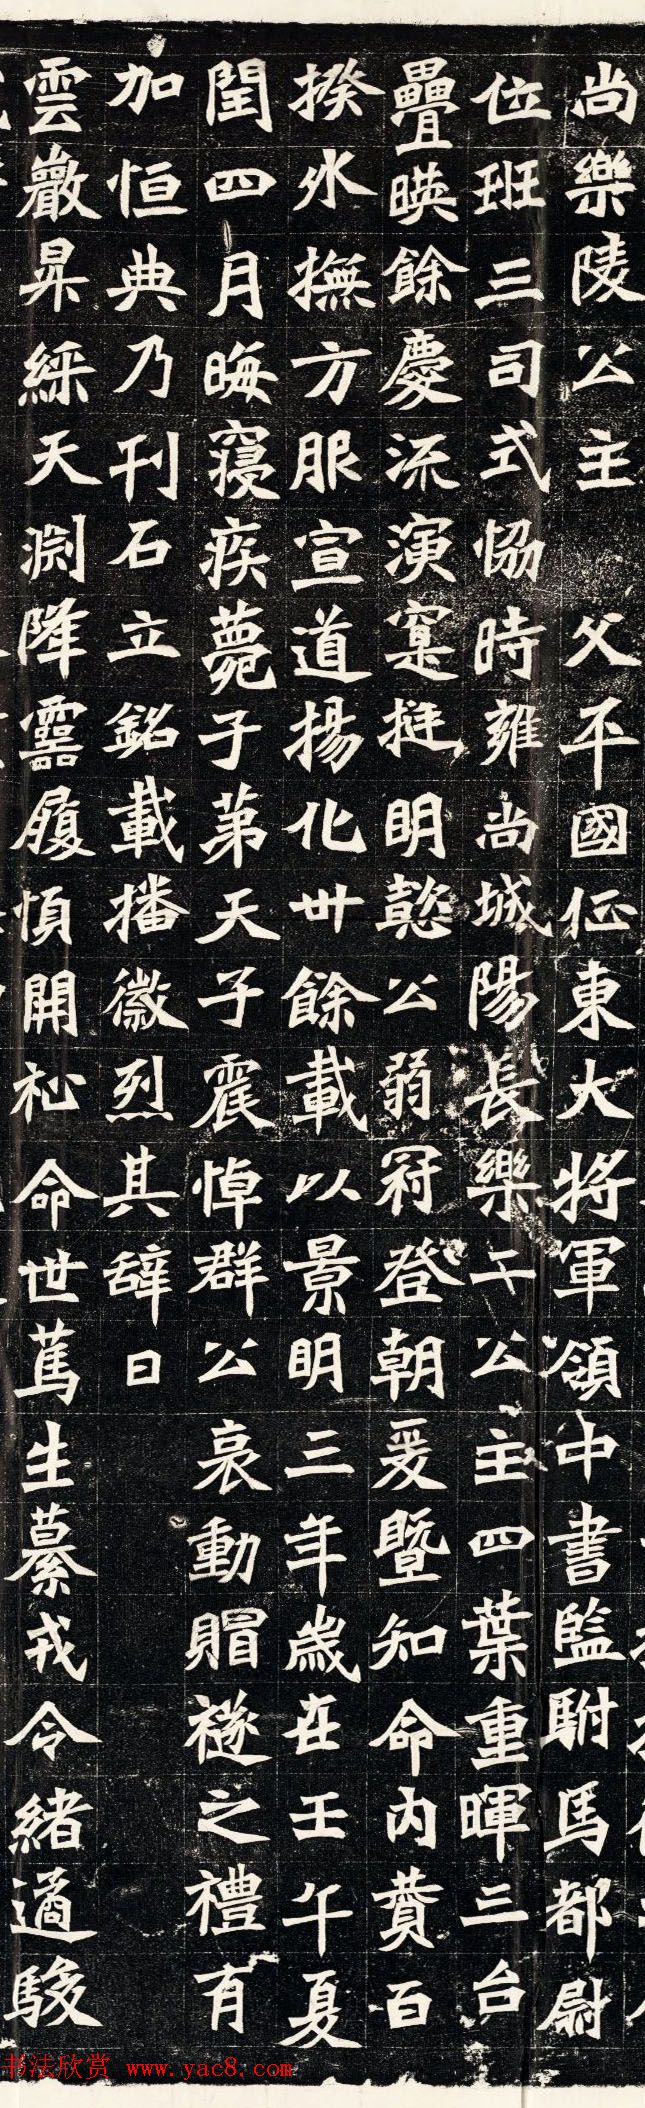 尚樂陵公主 父平國征東大將軍領中書監駙馬都尉
位班三司式協時雍尚城陽長樂二公主四葉重暉三台
疊暎餘慶流演寔挺明懿公弱冠登朝爰暨知命內贊百
揆外撫方服宣道揚化卅餘載以景明三年歲在壬午夏
閏四月晦寢疾薨子第天子震悼群公哀動賵襚之禮有
加恒典乃刊石立銘載播徽烈其辞曰
雲巖昇綵天渊降靈履順開祉命世篤生纂戎令緒遹駿
书法欣赏 www.yac8.com